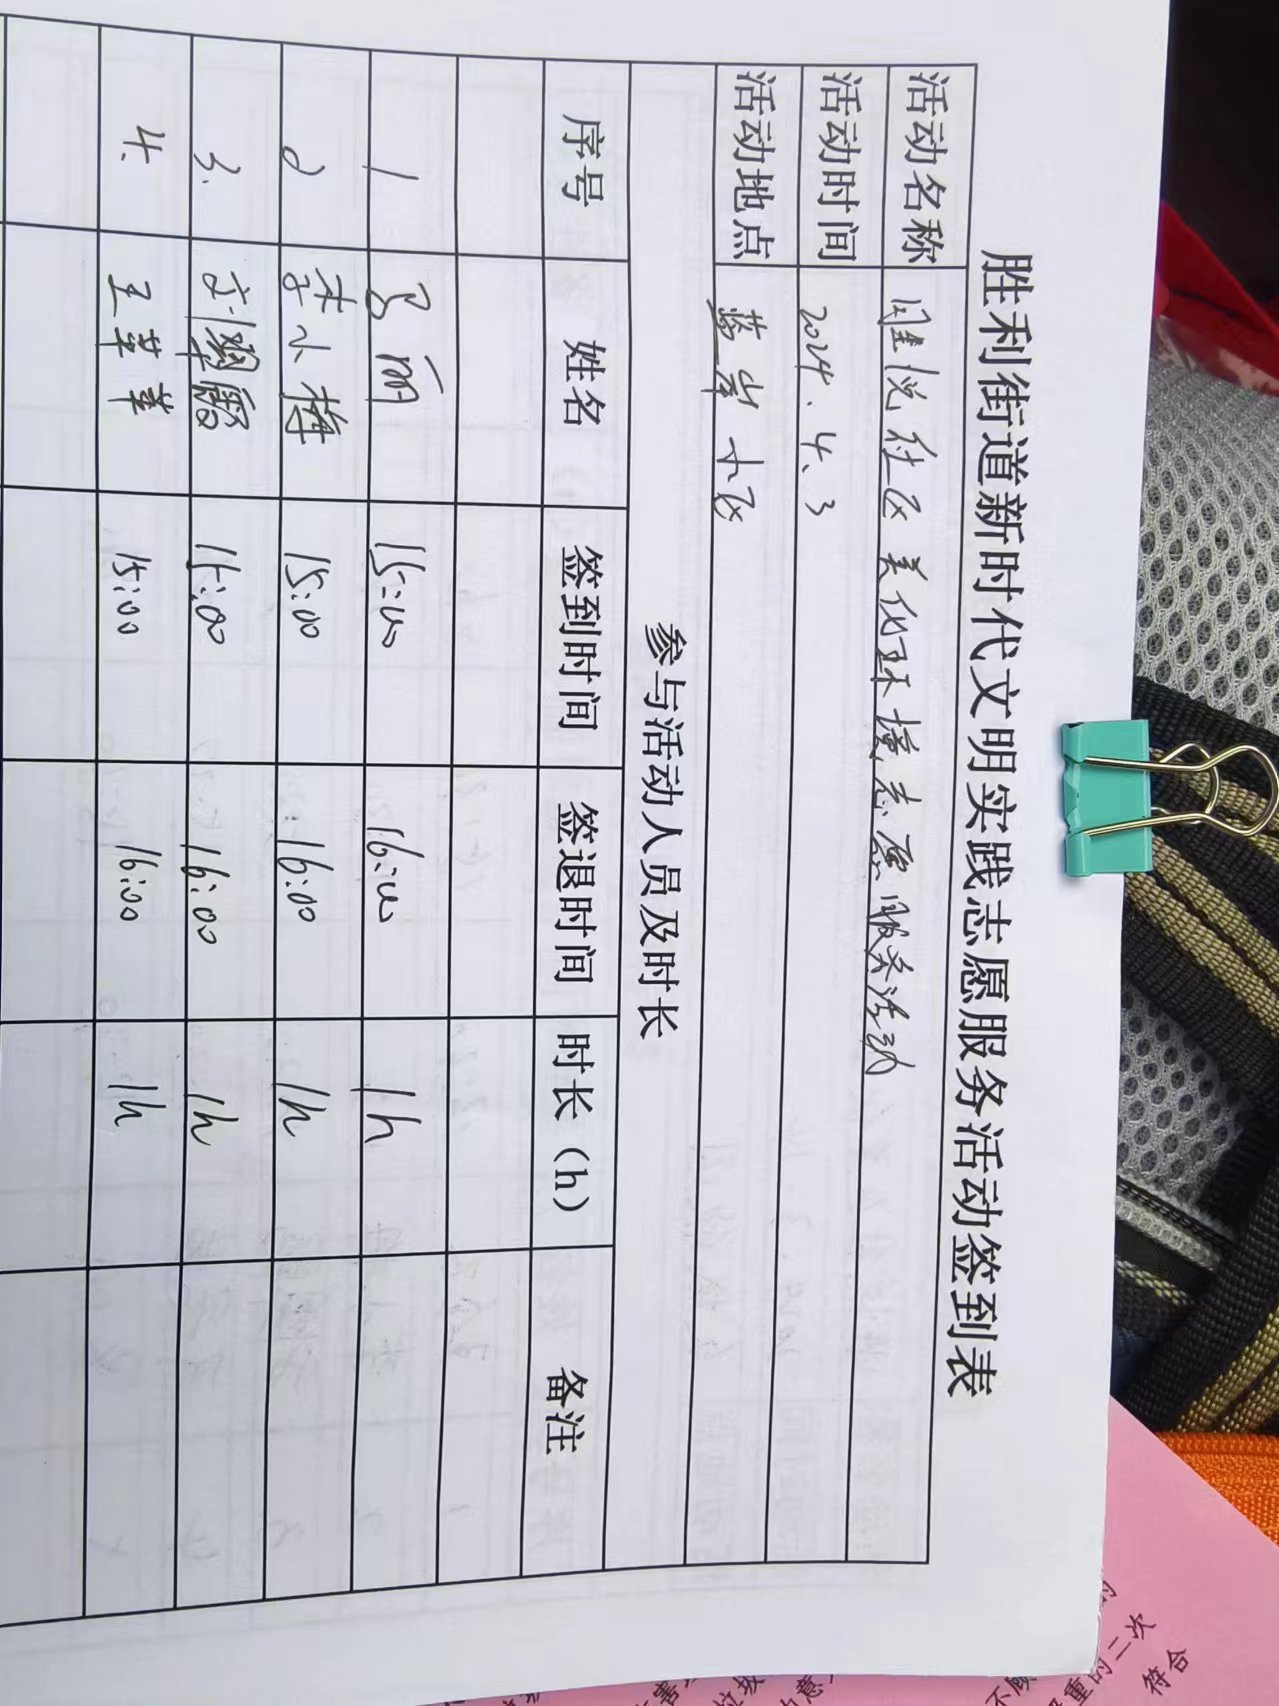 胜利街道新时代文明实践志愿服务活动签到表
活动名称 悦社区美化环境志愿服务活动
活动时间 2024.4.3
活动地点 蓝岸小区
参与活动人员及时长
序号 姓名 签到时间 签退时间 时长（h） 备注
1 马丽 15:00 16:00 1h
2 李小梅 15:00 16:00 1h
3. 刘翠霞 15:00 16:00 1h
4. 王苹苹 15:00 16:00 1h
重的二次
符合